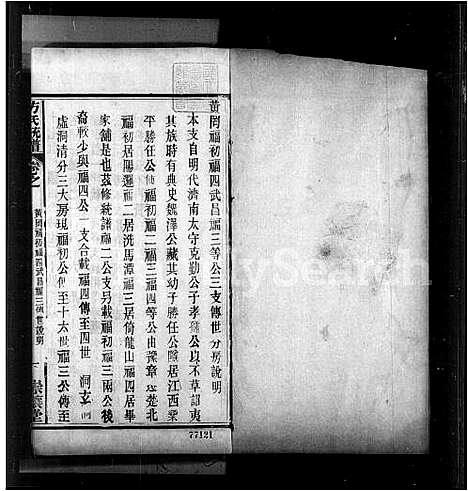 黃岡福初福四武昌福三等公三支傳世分房說明
本支自明代濟南太守克勤公子孝孺公以不草詔夷
其族時有典史魏澤公藏其幼子勝任公隱居江西
平勝任公傳福初福二福三福四等公由豫章遷楚北
福初居陽邏福二居洗馬潭福三居倚龍山福四居畢
家舖是也茲修統譜福二公支另載福初福三兩公後
裔較少與福四公一支合載福四傳至四世 洞玄
虛洞清分三大房現福初公傳至十太世福三公傳至
方氏統譜
卷之
黃岡福初福四武昌福三傳世說明
一
崇 堂
77121